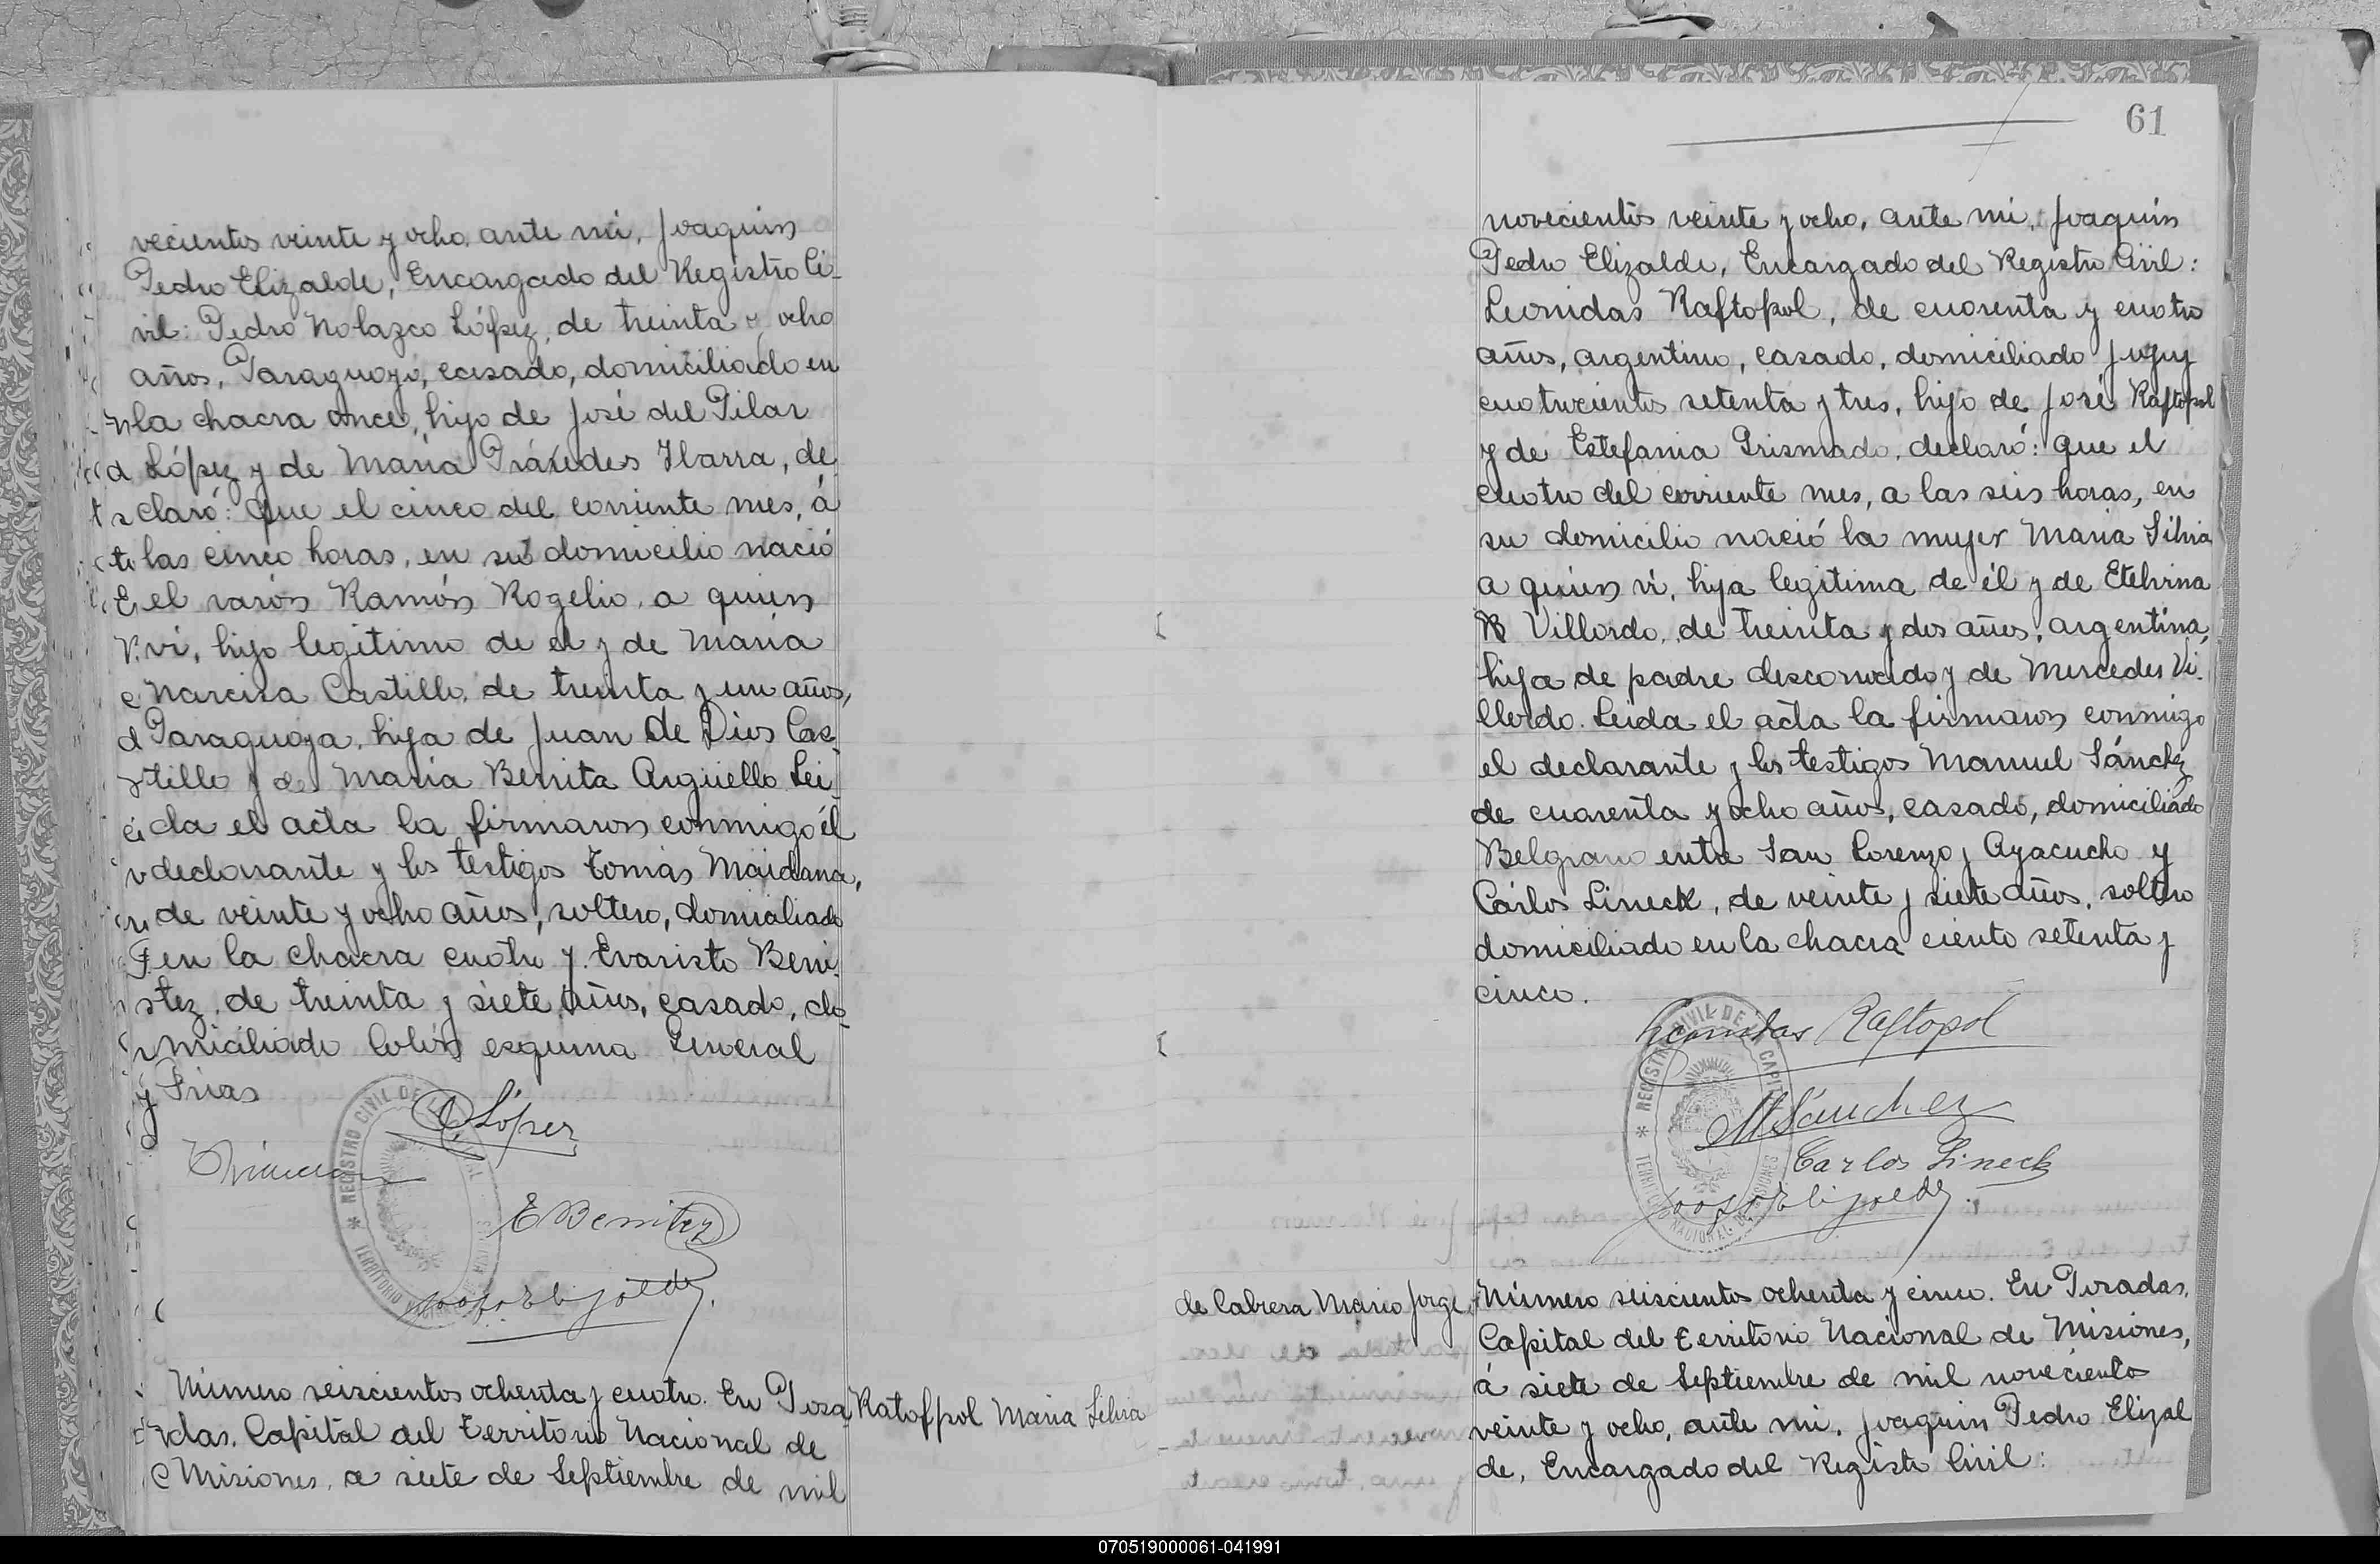 vecientos veinte y ocho, ante mí, Joaquín
Pedro Elizalde, Encargado del Registro Ci-
vil: Pedro Nolazco López, de treinta y ocho
años, Paraguayo, casado, domiciliado en
la chacra once, hijo de José del Pilar
López y de María Práxedes Ybarra, de-
claró: Que el cinco del corriente mes, á
las cinco horas, en su domicilio nació
el varón Ramón Rogelio, a quien
vi, hijo legítimo de el y de María
Narcisa Castillo, de treinta y un años,
Paraguaya, hija de Juan de Dios Cas-
tillo y de María Benita Argüello. Lei-
da el acta la firmaron conmigo él
declarante y los testigos Tomás Maidana,
de veinte y ocho años, soltero, domiciliado
en la chacra cuatro y Evaristo Beni-
tez, de treinta y siete años, casado, do-
miciliado Colón esquina General
Frias
López
E Benitez
REGISTRO CIVIL DE LA CAPITAL
TERRITORIO NACIONAL DE MISIONES
Número seiscientos ochenta y cuatro. En Posa-
das, Capital del Territorio Nacional de
Misiones, a siete de Septiembre de mil
Ratofpol Maria Silvia
61
novecientos veinte y ocho, ante mí, Joaquín
Pedro Elizalde, Encargado del Registro Civil:
Leonidas Raftopol, de cuarenta y cuatro
años, argentino, casado, domiciliado Jujuy
cuatrocientos setenta y tres, hijo de José Raftopol
y de Estefania Prismado, declaró: Que el
cuatro del corriente mes, a las seis horas, en
su domicilio nació la mujer Maria Silvia
a quien vi, hija legítima de él y de Etelvina
B Villordo, de treinta y dos años, argentina,
hija de padre desconocido y de Mercedes Vi-
llordo. Leida el acta la firmaron conmigo
el declarante y los testigos Manuel Sánchez
de cuarenta y ocho años, casado, domiciliado
Belgrano entre San Lorenzo y Ayacucho y
Cárlos Lineck, de veinte y siete años, soltero
domiciliado en la chacra ciento setenta y
cinco.
Leonidas Raftopol
M Sanchez
Carlos Lineck
REGISTRO CIVIL DE LA CAPITAL
TERRITORIO NACIONAL DE MISIONES
de Cabrera Mario Jorge
Número seiscientos ochenta y cinco. En Posadas,
Capital del Territorio Nacional de Misiones,
á siete de Septiembre de mil novecientos
veinte y ocho, ante mí, Joaquín Pedro Elizal
de, Encargado del Registro Civil:
070519000061-041991